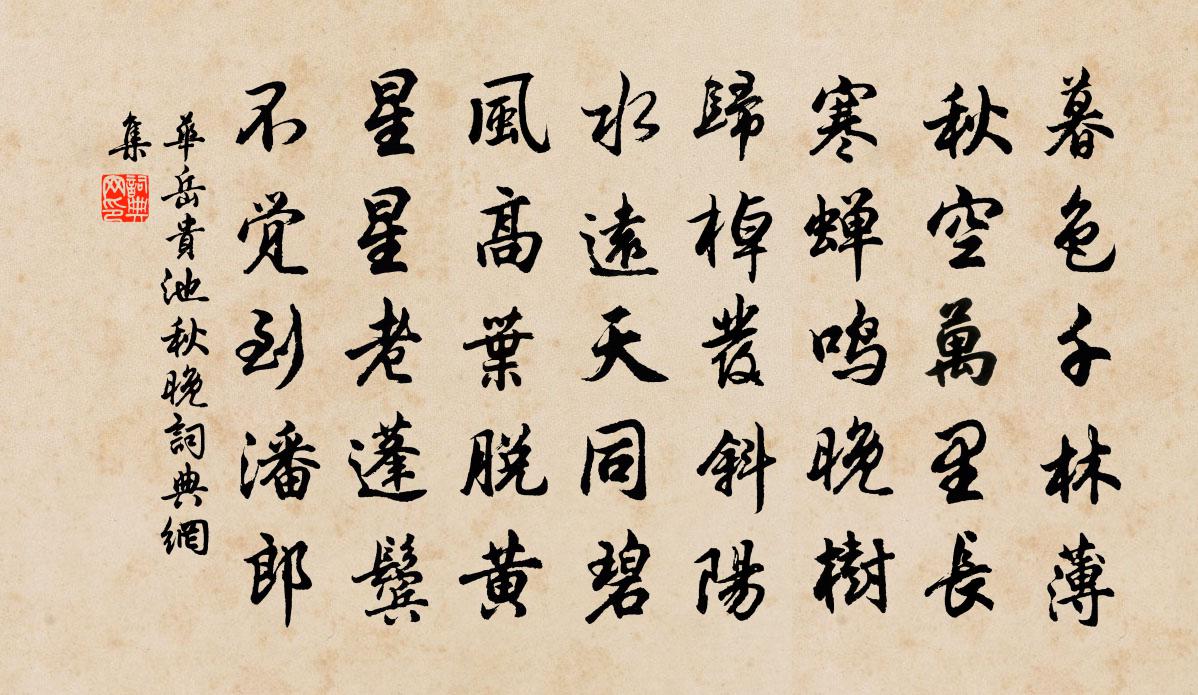 暮色千林薄
秋空萬里長
寒蝉鸣晚樹
歸棹發斜陽
水遠天同碧
風高葉脱黄
星星老蓬鬓
不觉到潘郎
華岳貴池秋晚詞典網
集
詞典
网印